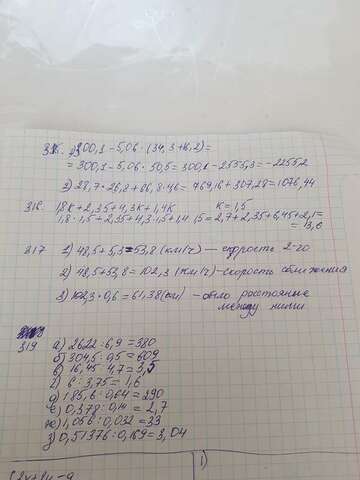 315. 1) 300,1 - 5,06 · (34,3+16,2) =
= 300,1 - 5,06 · 50,5 = 300,1 - 2555,3 = -2255,2
2) 28,7 · 26,8 + 66,8 · 46 = 769,16 + 307,28 = 1076,44
316. 1,8к + 2,35 + 4,3к + 1,4к к = 1,5
1,8 · 1,5 + 2,35 + 4,3 · 1,5 + 1,4 · 1,5 = 2,7 + 2,35 + 6,45 + 2,1 =
= 13,6
317 1) 48,5 + 5,3 = 53,8 (км/ч) — скорость 2-го
2) 48,5 + 53,8 = 102,3 (км/ч) - скорость сближения
3) 102,3 · 0,6 = 61,38 (км) - было расстояние
между ними
319 а) 2622 : 6,9 = 380
б) 304,5 : 0,5 = 609
в) 16,45 : 4,7 = 3,5
г) 6 : 3,75 = 1,6
д) 185,6 : 0,64 = 290
е) 0,378 : 0,14 = 2,7
ж) 1,056 : 0,032 = 33
з) 0,51376 : 0,169 = 3,04
1)